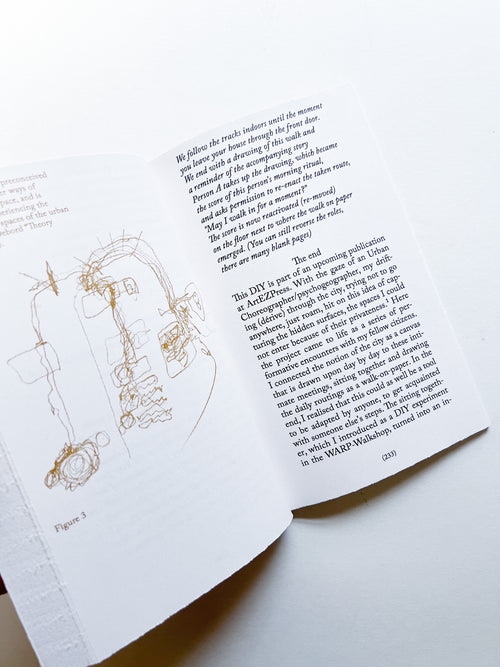 preconceived
ways of
pace, and is
periencing the
spaces of the urban
bored "Theory
Figure 3
We follow the tracks indoors until the moment
you leave your house through the front door.
We end with a drawing of this walk and
a reminder of the accompanying story
Person A takes up the drawing, which became
the score of this person's morning ritual,
and asks permission to re-enact the taken route,
"May I walk in for a moment?"
The score is now reactivated (re-moved)
on the floor next to where the walk on paper
emerged. (You can still reverse the roles,
there are many blank pages)
The end
This DIY is part of an upcoming publication
at ArtEZPress. With the gaze of an Urban
Choreographer/psychogeographer, my drift-
ing (dérive) through the city, trying not to go
anywhere, just roam, hit on this idea of cap-
turing the hidden surfaces, the spaces I could
not enter because of their privateness.¹ Here
the project came to life as a series of per-
formative encounters with my fellow citizens.
I connected the notion of the city as a canvas
that is drawn upon day by day to these inti-
mate meetings, sitting together and drawing
the daily routings as a walk-on-paper. In the
end, I realised that this could as well be a tool
to be adapted by anyone, to get acquainted
with someone else's steps. The sitting togeth-
er, which I introduced as a DIY experiment
in the WARP-Walkshop, turned into an in-
(233)